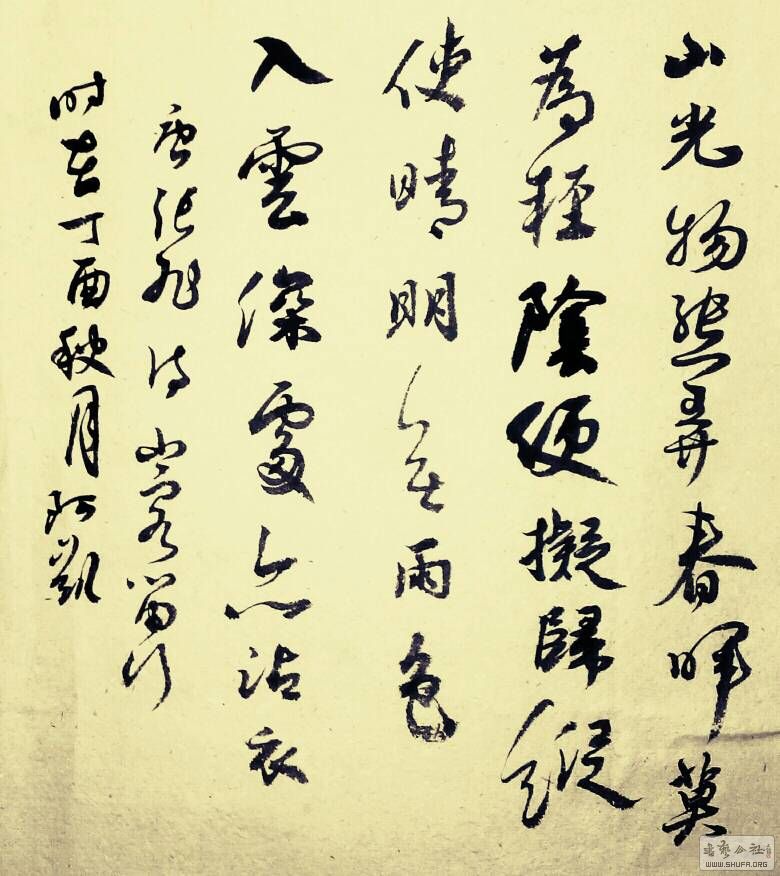 山光物態弄春暉莫
為輕陰便擬歸縱
使晴明無雨色
入雲深處亦沾衣
唐張旭詩山客留行
时在丁酉秋月阿凱
書艺公社
WWW.SHUFA.ORG